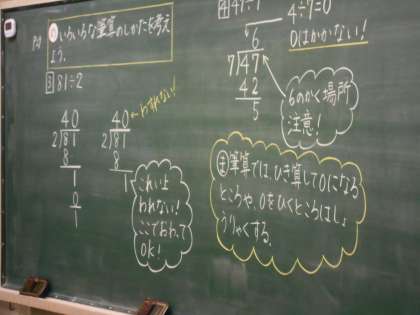 P4
め いろいろな筆算のしかたを考え
よう。
3 81÷2
40
2)81
8
1
0
1
40
2)81
8
1
わすれない!
これいじょ
われない!
ここでおわって
OK!
4 47÷7
4÷7=0
0はかかない!
6
7)47
42
5
6のかく場所
注意!
ま 筆算では、ひき算して0になる
ところや、0をひくところはしょ
うりゃくする。